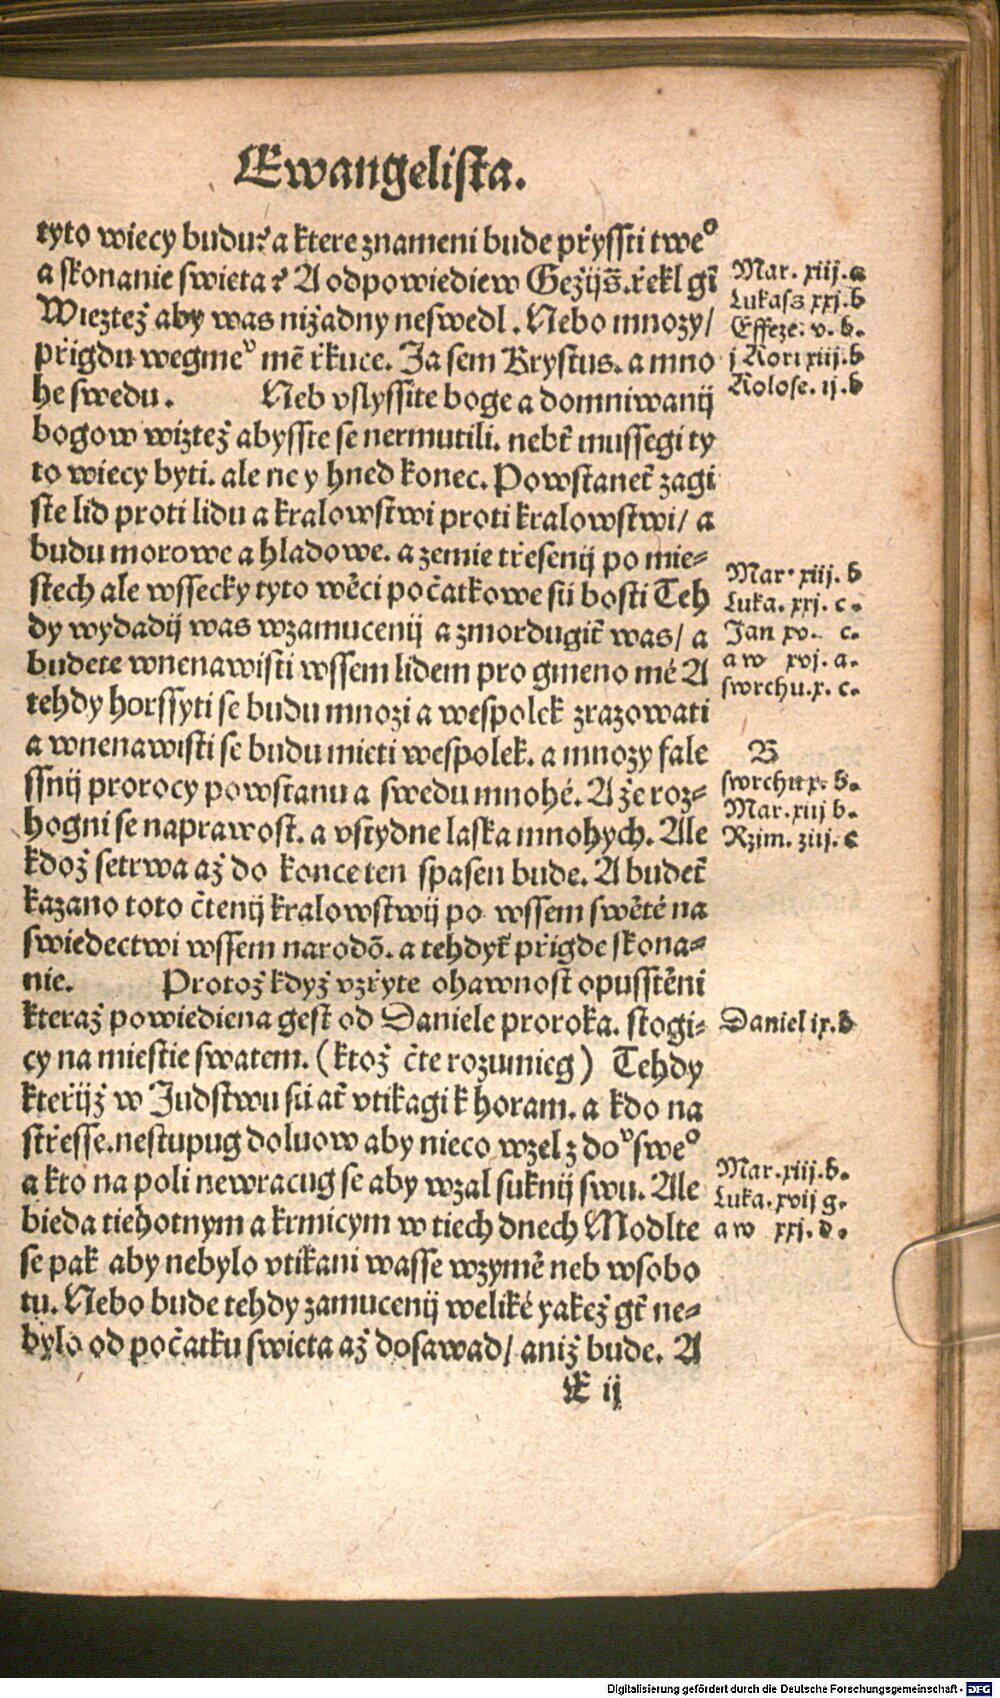 Ewangelista.
tyto wiecy budu? a ktere znameni bude přyssti tweº
a skonanie swieta? A odpowiediew Gežijs̃. řekl gĩ
Wieztež aby was nižadny neswedl. Nebo mnozy/
přigdu wegmeᵛ mẽ řkuce. Ja sem Krystus. a mno
he swedu. Neb vslyssite boge a domniwanij
bogow wiztež abysste se nermutili. nebt̃ mussegi ty
to wiecy byti. ale ne y hned konec. Powstanet̃ zagi
ste lid proti lidu a kralowstwi proti kralowstwi/ a
budu morowe a hladowe. a zemie třesenij po mie=
stech ale wssecky tyto wěci počatkowe sú bosti Teh
dy wydadij was wzamucenij a zmordugit̃ was/ a
budete wnenawisti wssem lidem pro gmeno mé A
tehdy horssyti se budu mnozi a wespolek zrazowati
a wnenawisti se budu mieti wespolek. a mnozy fale
ssnij prorocy powstanu a swedu mnohé. A že roz=
hogni se naprawost. a vstydne laska mnohych. Ale
kdož setrwa až do konce ten spasen bude. A budet̃
kazano toto čtenij kralowstwij po wssem swětě na
swiedectwi wssem narodõ. a tehdyt̃ přigde skona=
nie. Protož když vzřyte ohawnost opusstěni
kteraž powiediena gest od Daniele proroka. stogi=
cy na miestie swatem. (ktož čte rozumieg) Tehdy
kteřijž w Judstwu sú at̃ vtikagi k horam. a kdo na
střesse. nestupug doluow aby nieco wzel z doᵛ sweº
a kto na poli newracug se aby wzal suknij swu. Ale
bieda tiehotnym a krmicym w tiech dnech Modlte
se pak aby nebylo vtikani wasse wzymě neb wsobo
tu. Nebo bude tehdy zamucenij weliké yakež gt̃ ne=
bylo od počatku swieta až dosawad/ aniž bude. A
E ij
Mar. xiij. a
Lukass xxj. b
Effeze. v. b.
j Kori xiij. b
Kolose. ij. b
Mar. xiij. b
Luka. xxj. c.
Jan xv. c.
a w xvj. a.
swrchu. x. c.
B
swrchu x. b.
Mar. xiij b.
Rzim. ziij. c
Daniel ix. b
Mar. xiij. b.
Luka. xvij g.
a w xxj. d.
Digitalisierung gefördert durch die Deutsche Forschungsgemeinschaft - DFG